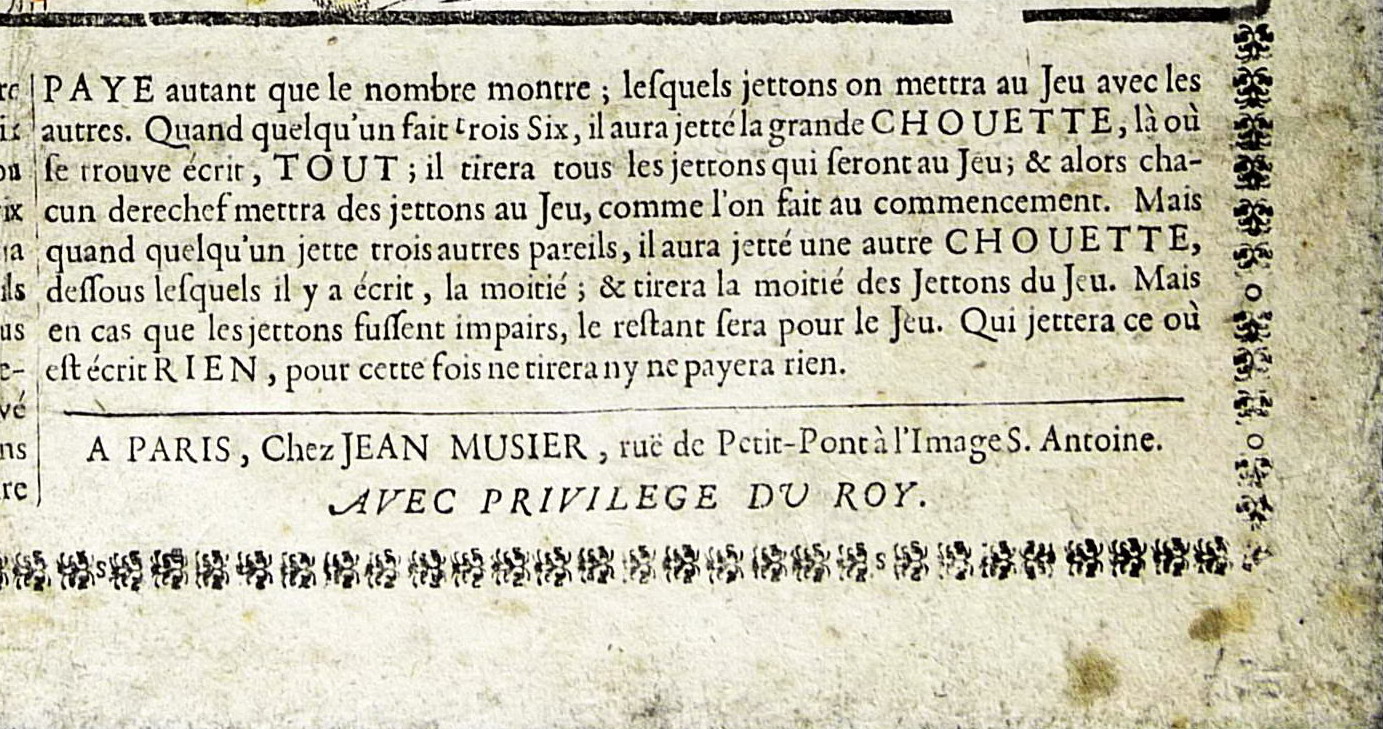 PAYE autant que le nombre montre ; leſquels jettons on mettra au Jeu avec les
autres. Quand quelqu'un fait trois Six, il aura jetté la grande CHOUETTE, là où
ſe trouve écrit, TOUT ; il tirera tous les jettons qui ſeront au Jeu; & alors cha-
cun derechef mettra des jettons au Jeu, comme l'on fait au commencement. Mais
quand quelqu'un jette trois autres pareils, il aura jetté une autre CHOUETTE,
deſſous leſquels il y a écrit, la moitié ; & tirera la moitié des Jettons du Jeu. Mais
en cas que les jettons fuſſent impairs, le reſtant ſera pour le Jeu. Qui jettera ce où
eſt écrit RIEN, pour cette fois ne tirera ny ne payera rien.
A PARIS, Chez JEAN MUSIER, ruë de Petit-Pont à l'Image S. Antoine.
AVEC PRIVILEGE DU ROY.